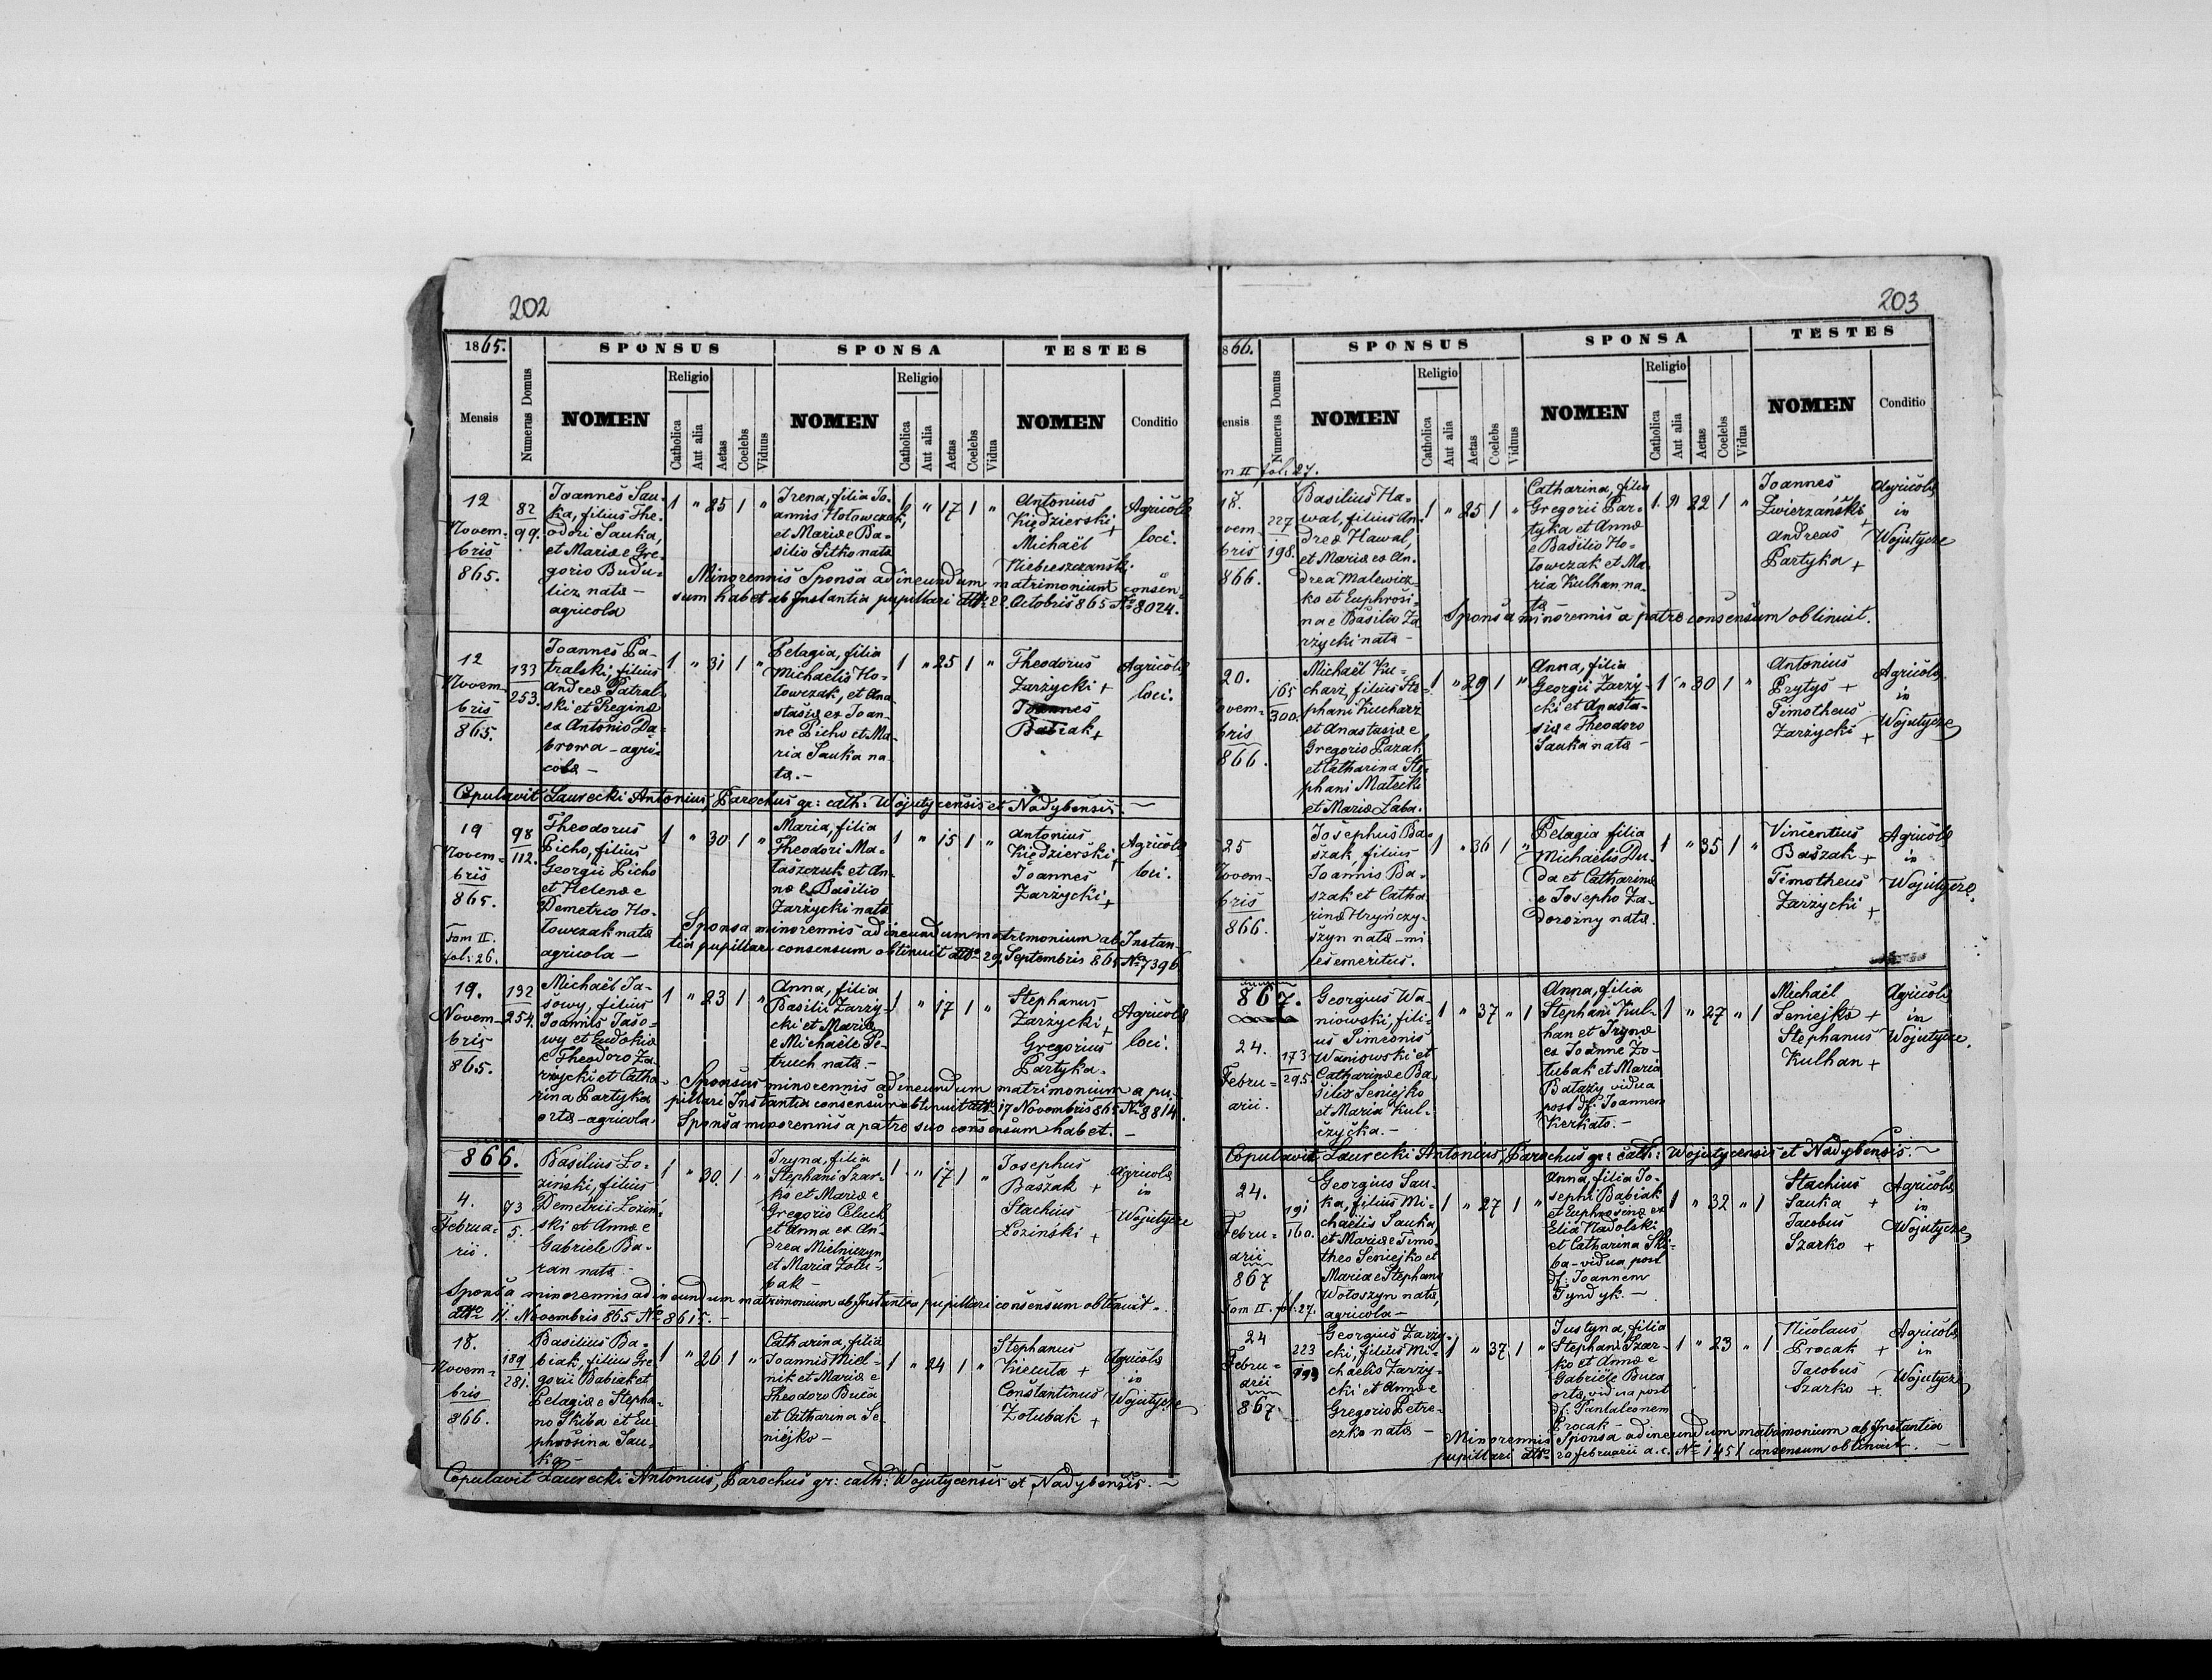 202
1865.
SPONSUS
SPONSA
TESTES
Mensis
Numerus Domus
NOMEN
Religio
Catholica
Aut alia
Aetas
Coelebs
Viduus
NOMEN
Religio
Catholica
Aut alia
Aetas
Coelebs
Vidua
NOMEN
Conditio
12
Novem-
bris
865.
82
99.
Joannes Sau-
ka, filius The-
odori Sauka,
et Mariæ e Gre-
gorio Budu-
licz natæ -
agricola
1 " 25 1 "
Irena, filia Jo-
annis Hołowczak,
et Mariæ e Ba-
silio Sitko nata
1 " 17 1 "
Antonius
Kiędzierski +
Michaël
Niebreszczański
Agricolæ
loci.
Minorennis Sponsa ad ineundum matrimonium consen-
sum habet ab Instantia pupillari ddto 22. Octobris 865 No 8024.
12
Novem-
bris
865.
133
253.
Joannes Pa-
tralski, filius
Andreæ Patral-
ski et Reginæ
ex Antonio Da-
browa - agri-
cola -
1 " 31 1 "
Pelagia, filia
Michaëlis Ho-
łowczak, et Ana-
stasiæ ex Joan-
ne Picho et Ma-
ria Sauka na-
tæ. -
1 " 25 1 "
Theodorus
Zarzycki +
Joannes
Babiak +
Agricolæ
loci.
Copulavit Laurecki Antonius, Parochus gr: cath: Wojutycensis et Nadybensis. -
19
Novem-
bris
865.
Tom II.
fol: 26.
98
112.
Theodorus
Picho, filius
Georgii Picho
et Helenæ e
Demetrio Ho-
łowczak natæ
agricola -
1 " 30 1 "
Maria, filia
Theodori Ma-
łaszczuk et An-
næ e Basilio
Zarzycki natæ
1 " 15 1 "
Antonius
Kiędzierski +
Joannes
Zarzycki +
Agricolæ
loci.
Sponsa minorennis ad ineundum matrimonium ab Instan-
tia pupillari consensum obtinuit ddto 29. Septembris 865 No 7396.
19.
Novem-
bris
865.
132
254.
Michaël Ja-
sowy, filius
Joannis Jaso-
wy et Eudokiæ
e Theodoro Za-
rzycki et Catha-
rina Partyka
ortæ - agricola.
1 " 23 1 "
Anna, filia
Basilii Zarzy-
cki et Mariæ
e Michaële Pe-
truch natæ. -
1 " 17 1 "
Stephanus
Zarzycki +
Gregorius
Partyka.
Agricolæ
loci.
Sponsus minorennis ad ineundum matrimonium a pu-
pillari Instantia consensum obtinuit ddto 17 Novembris 865 No 8814.
Sponsa minorennis a patre suo consensum habet. -
866.
4.
Februa-
rii.
73
5.
Basilius Ło-
zinski, filius
Demetrii Łoziń-
ski et Annæ e
Gabriele Ba-
ran natæ. -
1 " 30. 1 "
Iryna, filia
Stephani Szar-
ko et Mariæ e
Gregorio Celuch
et Anna ex An-
drea Mielniczyn
et Maria Zołu-
bak -
1 " 17 1 "
Josephus
Baszak +
Stachius
Łoziński +
Agricolæ
in
Wojutycze
Sponsa minorennis ad ineundum matrimonium ab Instantia pupillari consensum obtinuit.
ddto 11. Novembris 865 No 8615. -
18.
Novem-
bris
866.
189
281.
Basilius Ba-
biak, filius Gre-
gorii Babiak et
Pelagiæ e Stepha-
no Skiba et Eu-
phrosina Sau-
ka -
1 " 26 1 "
Catharina, filia
Joannis Miel-
nik et Mariæ e
Theodoro Buca
et Catharina Se-
niejko -
1 " 24 1 "
Stephanus
Kiecuta +
Constantinus
Zołubak +
Agricolæ
in
Wojutycze
Copulavit Laurecki Antonius, Parochus gr: cath: Wojutycensis et Nadybensis. -
203
866.
SPONSUS
SPONSA
TESTES
ensis
Numerus Domus
NOMEN
Religio
Catholica
Aut alia
Aetas
Coelebs
Viduus
NOMEN
Religio
Catholica
Aut alia
Aetas
Coelebs
Vidua
NOMEN
Conditio
m II fol: 27.
18.
ovem-
bris
866.
227
198.
Basilius Ha-
wal, filius An-
dreæ Hawal,
et Mariæ ex An-
drea Malewicz-
ko et Euphrosi-
na e Basilio Za-
rzycki natæ -
1 " 25 1 "
Catharina, filia
Gregorii Par-
tyka et Annæ
e Basilio Ho-
łowczak et Ma-
ria Kulhan na-
tæ
1 " 22 1 "
Joannes
Zwierzański +
Andreas
Partyka +
Agricolæ
in
Wojutycze
Sponsa minorennis a patre consensum obtinuit.
20.
ovem-
bris
866.
165
300.
Michaël Ku-
charz, filius Ste-
phani Kucharz
et Anastasiæ e
Gregorio Pazak
et Catharina Ste-
phani Małecki
et Mariæ Łaba.
1 " 29 1 "
Anna, filia
Georgii Zarzy-
cki et Anasta-
siæ e Theodoro
Sauka natæ -
1 " 30 1 "
Antonius
Prytys +
Timotheus
Zarzycki +
Agricolæ
in
Wojutycze
25
Novem-
bris
866.
Josephus Ba-
szak, filius
Joannis Ba-
szak et Catha-
rinæ Hryńczy-
szyn natæ - mi-
les emeritus.
1 " 36 1 "
Pelagia filia
Michaëlis Du-
da et Catharinæ
e Josepho Za-
dorożny natæ.
1 " 35 1 "
Vincentius
Baszak +
Timotheus
Zarzycki +
Agricolæ
in
Wojutycze.
867.
24.
Febru-
arii.
173
295
Georgius Wa-
niowski, fili-
us Simeonis
Waniowski et
Catharinæ e Ba-
silio Seniejko
et Maria Kul-
czycka. -
1 " 37 " 1
Anna, filia
Stephani Kul-
han et Irynæ
ex Joanne Zo-
łubak et Maria
Bałazy vidua
post df: Joannem
Kerkało. -
1 " 27 " 1
Michaël
Seniejko +
Stephanus
Kulhan +
Agricolæ
in
Wojutycze.
Copulavit Laurecki Antonius, Parochus gr: cath: Wojutycensis et Nadybensis. -
24.
Febru-
arii
867
Tom II. fol: 27.
191
160.
Georgius Sau-
ka, filius Mi-
chaëlis Sauka
et Mariæ e Timo-
theo Seniejko et
Maria e Stephano
Wołoszyn natæ,
agricola -
1 " 27 1 "
Anna, filia Jo-
sephi Babiak
et Euphrosinæ ex
Elia Nadolski
et Catharina Ski-
ba - vidua post
df: Joannem
Tyndyk. -
1 " 32 " 1
Stachius
Sauka +
Jacobus
Szarko +
Agricolæ
in
Wojutycze
24
Febru-
arii
867.
223
Georgius Zarzy-
cki, filius Mi-
chaëlis Zarzy-
cki et Annæ e
Gregorio Petre-
czko natæ -
1 " 37 1 "
Justyna, filia
Stephani Szar-
ko et Annæ e
Gabriële Buca
ortæ, vidua post
df: Pantaleonem
Procak -
1 " 23 " 1
Nicolaus
Procak +
Jacobus
Szarko +
Agricolæ
in
Wojutycze
Minorennis Sponsa ad ineundum matrimonium ab Instantia
pupillari ddto 20 februarii a. c. No 1451 consensum obtinuit. -